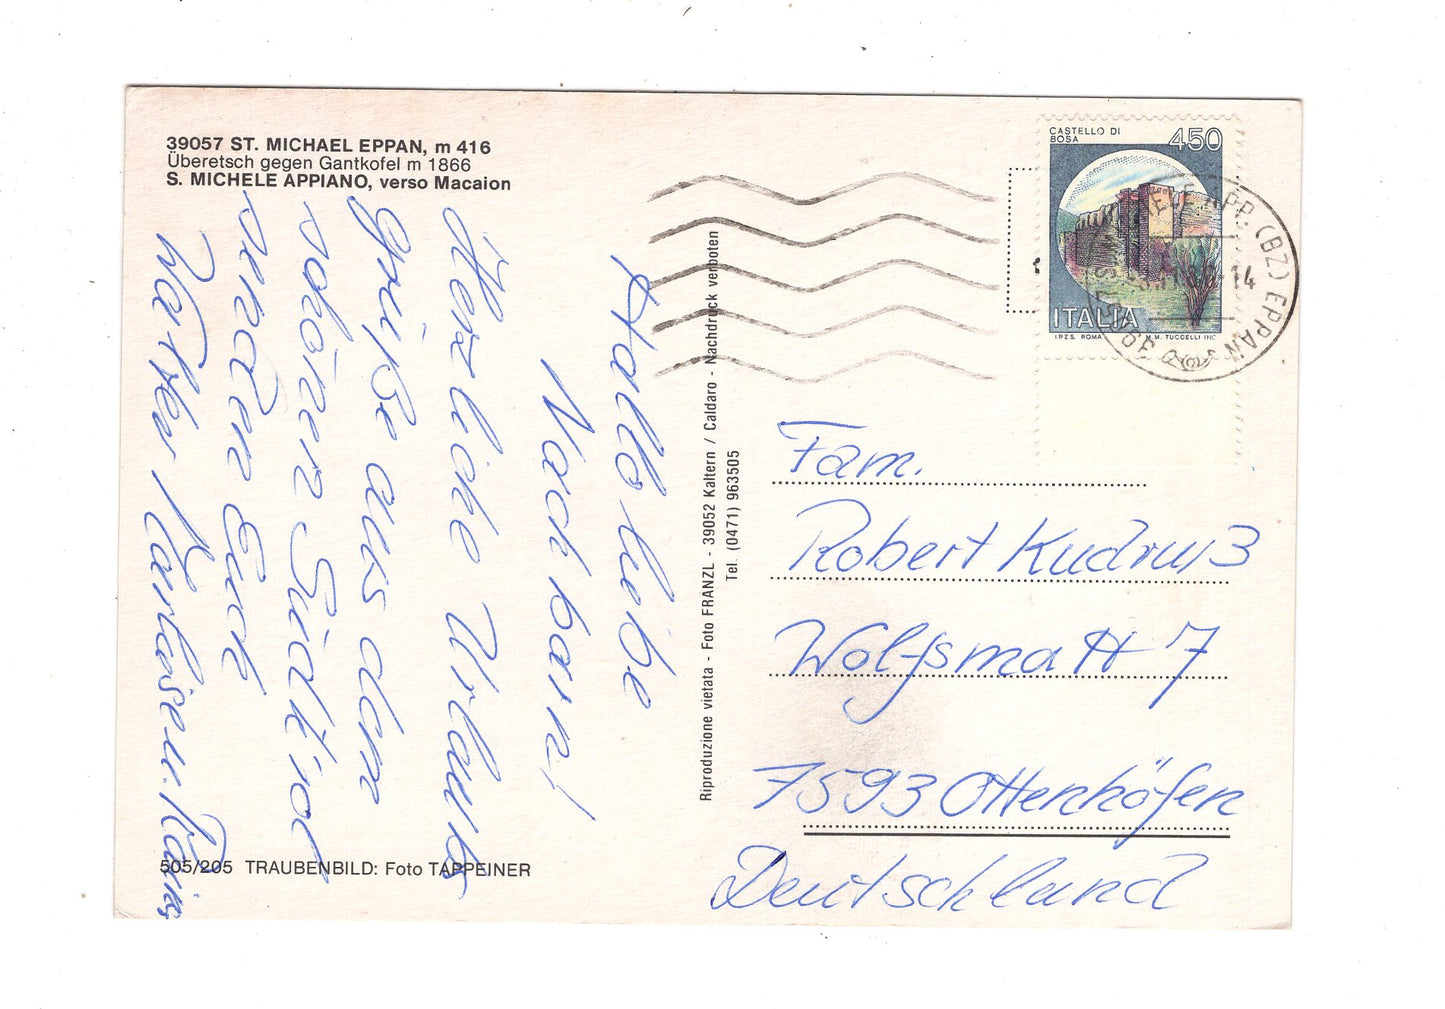 39057 ST. MICHAEL EPPAN, m 416
Überetsch gegen Gantkofel m 1866
S. MICHELE APPIANO, verso Macaion
Hallo liebe
Nachbarn!
Herzliche Urlaubs
grüße aus dem
schönen Südtirol
senden Euch
Walter Marliese u. Maria
505/205 TRAUBENBILD: Foto TAPPEINER
Riproduzione vietata - Foto FRANZL - 39052 Kaltern / Caldaro - Nachdruck verboten
Tel. (0471) 963505
CASTELLO DI
BOSA
450
ITALIA
I.P.Z.S. ROMA M.M. TUCCELLI INC.
APP. (BZ) EPPAN
-14
Fam.
Robert Kudruß
Wolfsmatt 7
7593 Ottenhöfen
Deutschland